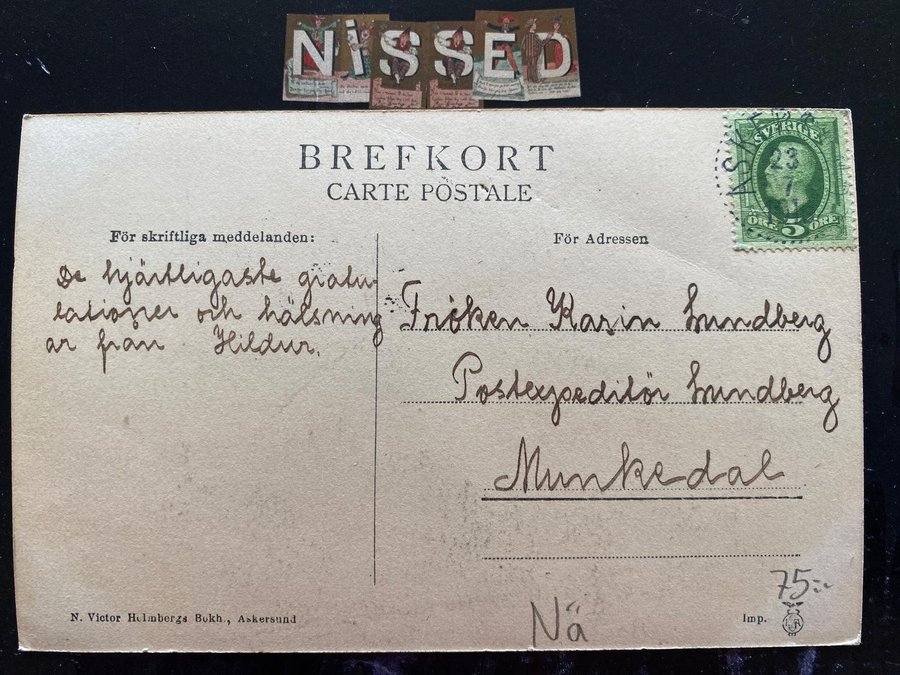 NiSSED
BREFKORT
CARTE POSTALE
SVERIGE
23
7
ÖRE 5 ÖRE
För skriftliga meddelanden:
För Adressen
De hjärtligaste gratu-
lationer och hälsning
ar från Hildur.
Fröken Karin Lundberg
Postexpeditör Lundberg
Munkedal
75:-
N. Victor Holmbergs Bokh., Askersund
Imp.
Nä